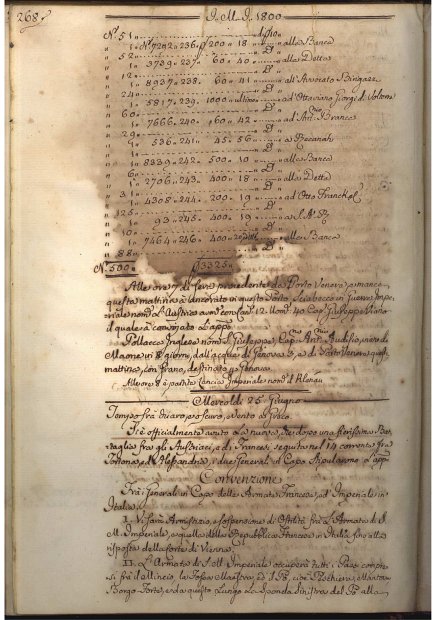 268
I. M. I. 1800
N.° 51
" 1 " N.° 7292 " 236 " 200 " 18 " alla Banca
" 52
" 1 " 3739 " 237 " 60 " 40 " alla Detta
" 12
" 1 " 8937 " 238 " 60 " 41 " all'Avvocato
" 24
" 1 " 5817 " 239 " 1000 ultimo " ad Ottaviano Giorgi di Volterra
" 60
" 1 " 7666 " 240 " 60 " 42 " ad Ant.° Branca
" 29
" 1 " 536 " 241 " 45 " 56 " a Recanati
" 8339 " 242 " 500 " 10 " alla Banca
" 6
" 1 " 2706 " 243 " 400 " 18 " alla Detta
" 3
" 1 " 4308 " 244 " 200 " 19 " ad Otto Franck
" 125
" 1 " 93 " 245 " 400 " 19
" 10
" 1 " 7464 " 246 " 400 " alla Banca
" 88
N.° 500 3325
Alle ore 7 di sera precedente da Porto Venere, e manca
questa mattina à ancorato in questo Porto Sciabecco in Guerra Impe
riale nom.° L'Austria arm.° con Can. 12 Uom. 40 Cap. Giuseppe
il quale à convojato l'app.°
Pollacca Inglese nom.° S. Giuseppe, Cap.no Ant.° Audifio, nero di
Maone in 8 giorni, dall'acqua di Genova 3, e da Porto Venere questa
mattina, con Grano, destinato p. Genova
Alle ore 8 è partita Lancia Imperiale nom.° il
Mercoledì 25 Giugno
Tempo frà chiaro, e oscuro, e Vento a
Si è officialmente avuto la nuova, che dopo una fierissima Bat
taglia frà gli Austriaci, e i Francesi seguita nel 14 corrente fra
Tortona, ed Alessandria, i due Generali in Capo stipularono l'app.°
Convenzione
Frà i Generali in Capo delle Armate Francese, ed Imperiale in
Italia,
I. Vi sarà Armistizio, e sospensione di Ostilità frà L'Armata di S.
M. Imperiale, e quella della Republica Francese in Italia fino alla
risposta della Corte di Vienna.
II. L'Armata di S. M. Imperiale occuperà tutti i Paesi compre
si frà il Mincio la Fossa Maestra, ed il Pò, cioè Peschiera, Mantova
Borgo-Forte, e da questo Luogo la Sponda Sinistra del Pò alla